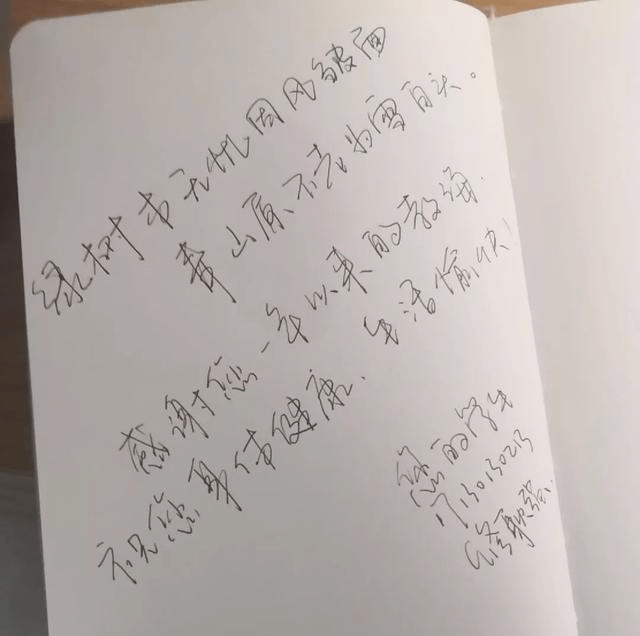 绿树本无忧因风皱面
青山原不老为雪白头。
感谢您一年以来的教诲.
祝您身体健康. 生活愉快!
您的学生